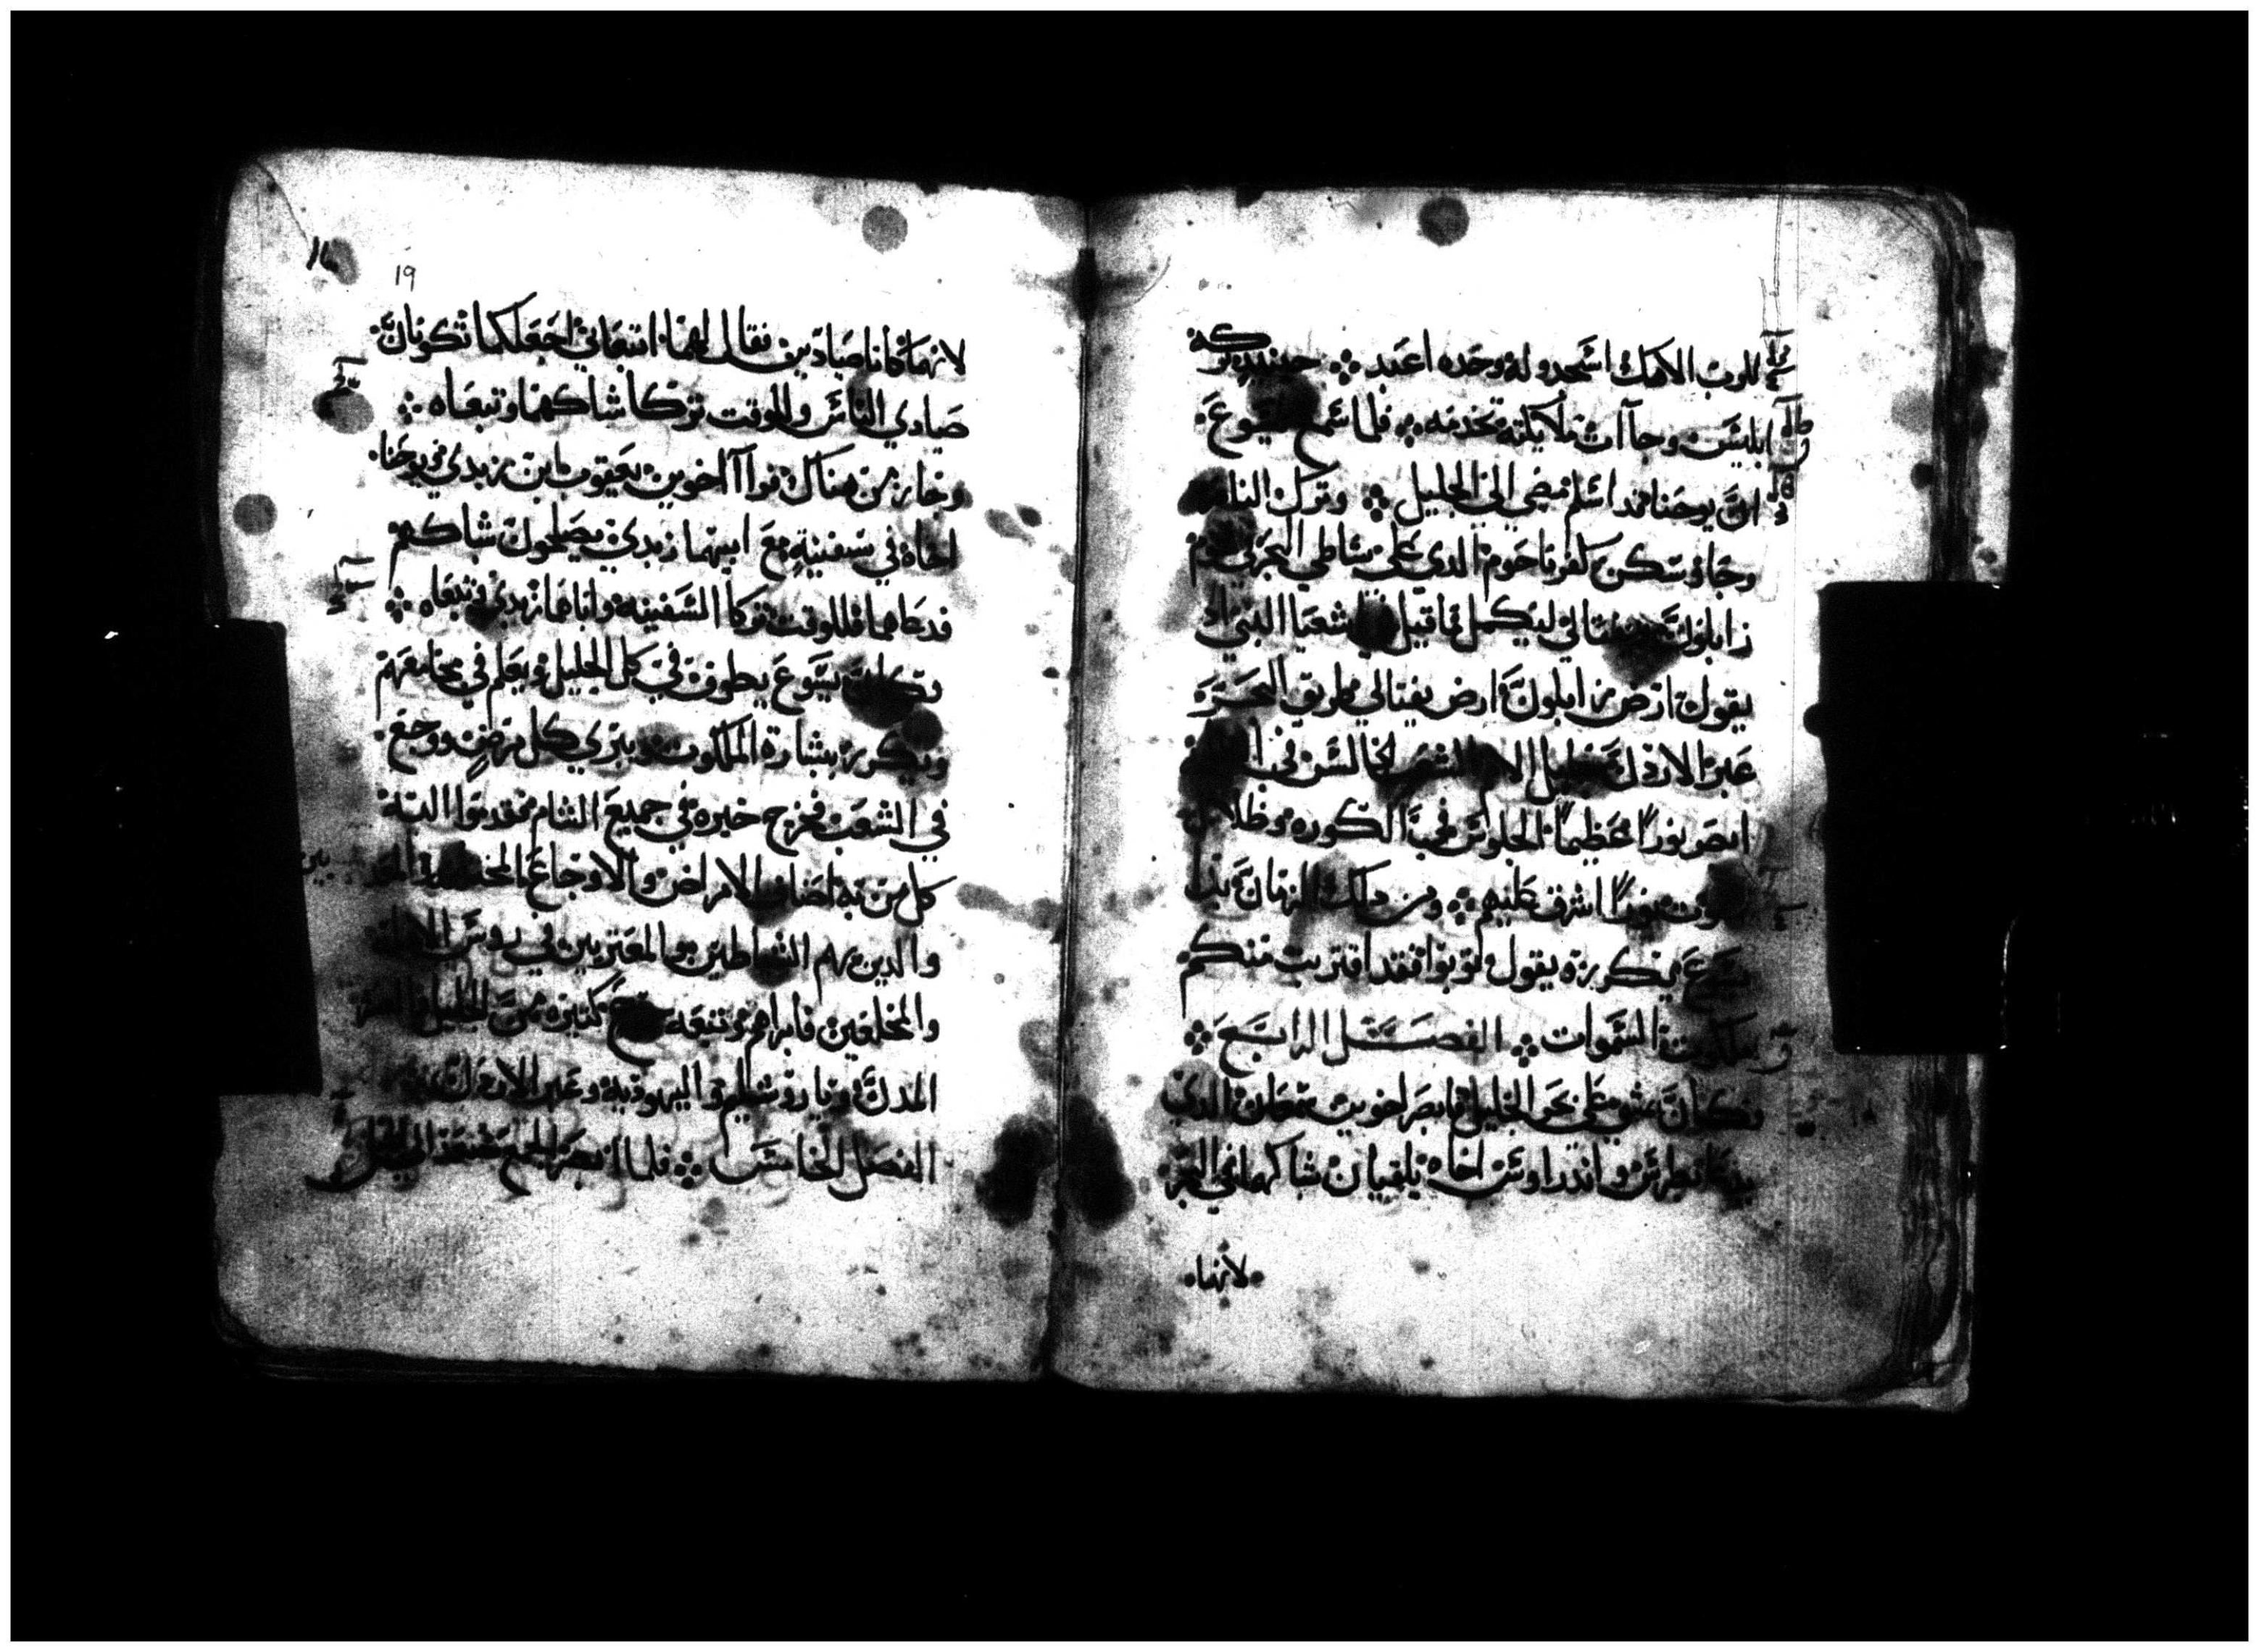 للرب الاهك اسجد وله وحده اعبد ❖ حينيد تركه
ابليس وجاآت ملايكته تخدمه ❖ فلما سمع يسوع
ان يوحنا قد اسلم مضى الى الجليل ❖ وترك الناصره
وجا وسكن كفرناحوم الدي على شاطي البحر في تخوم
زابلون ونفتالي ليكمل ما قيل في اشعيا النبي اد
يقول ارض زابلون ارض نفتالي طريق البحر
عبر الاردن جليل الامم الشعب الجالس في
ابصر نورا عظيما الجلوس في الكوره وظلال
الموت نور اشرق عليهم ❖ ومن دلك الزمان بدا
يسوع يكرزه يقول توبوا فقد اقتربت منكم
ملكوت السموات ❖ الفصل الرابع ❖
وكان يمشي على بحر الجليل فابصر اخوين سمعان الدي
يدعا بطرس واندراوس اخاه يلقيان شباكهما في البحر
لانهما
19
لانهما كانا صيادين فقال لهما اتبعاني اجعلكما تكونان
صيادي الناس وللوقت تركا شباكهما وتبعاه ❖
وجاز من هناك فراآ اخوين يعقوب ابن زبدي ويوحنا
اخاه في سفينة مع ابيهما زبدي يصلحون شباكهم
فدعاهما فللوقت تركا السفينه واباهما زبدي وتبعاه ❖
وكان يسوع يطوف في كل الجليل ويعلم في مجامعهم
ويكرز ببشارة الملكوت ويبري كل مرض ووجع
في الشعب فخرج خبره في جميع الشام فقدموا اليه
كل من به اصناف الامراض والاوجاع المختلفه والمعدبين
والدين بهم الشياطين والمعتريين في روس الاهله
والمخلعين فابراهم وتبعه جمع كثيره من الجليل والعشر
المدن ويروشليم واليهوديه وعبر الاردن
الفصل الخامس ❖ فلما ابصر الجمع صعد الى الجبل